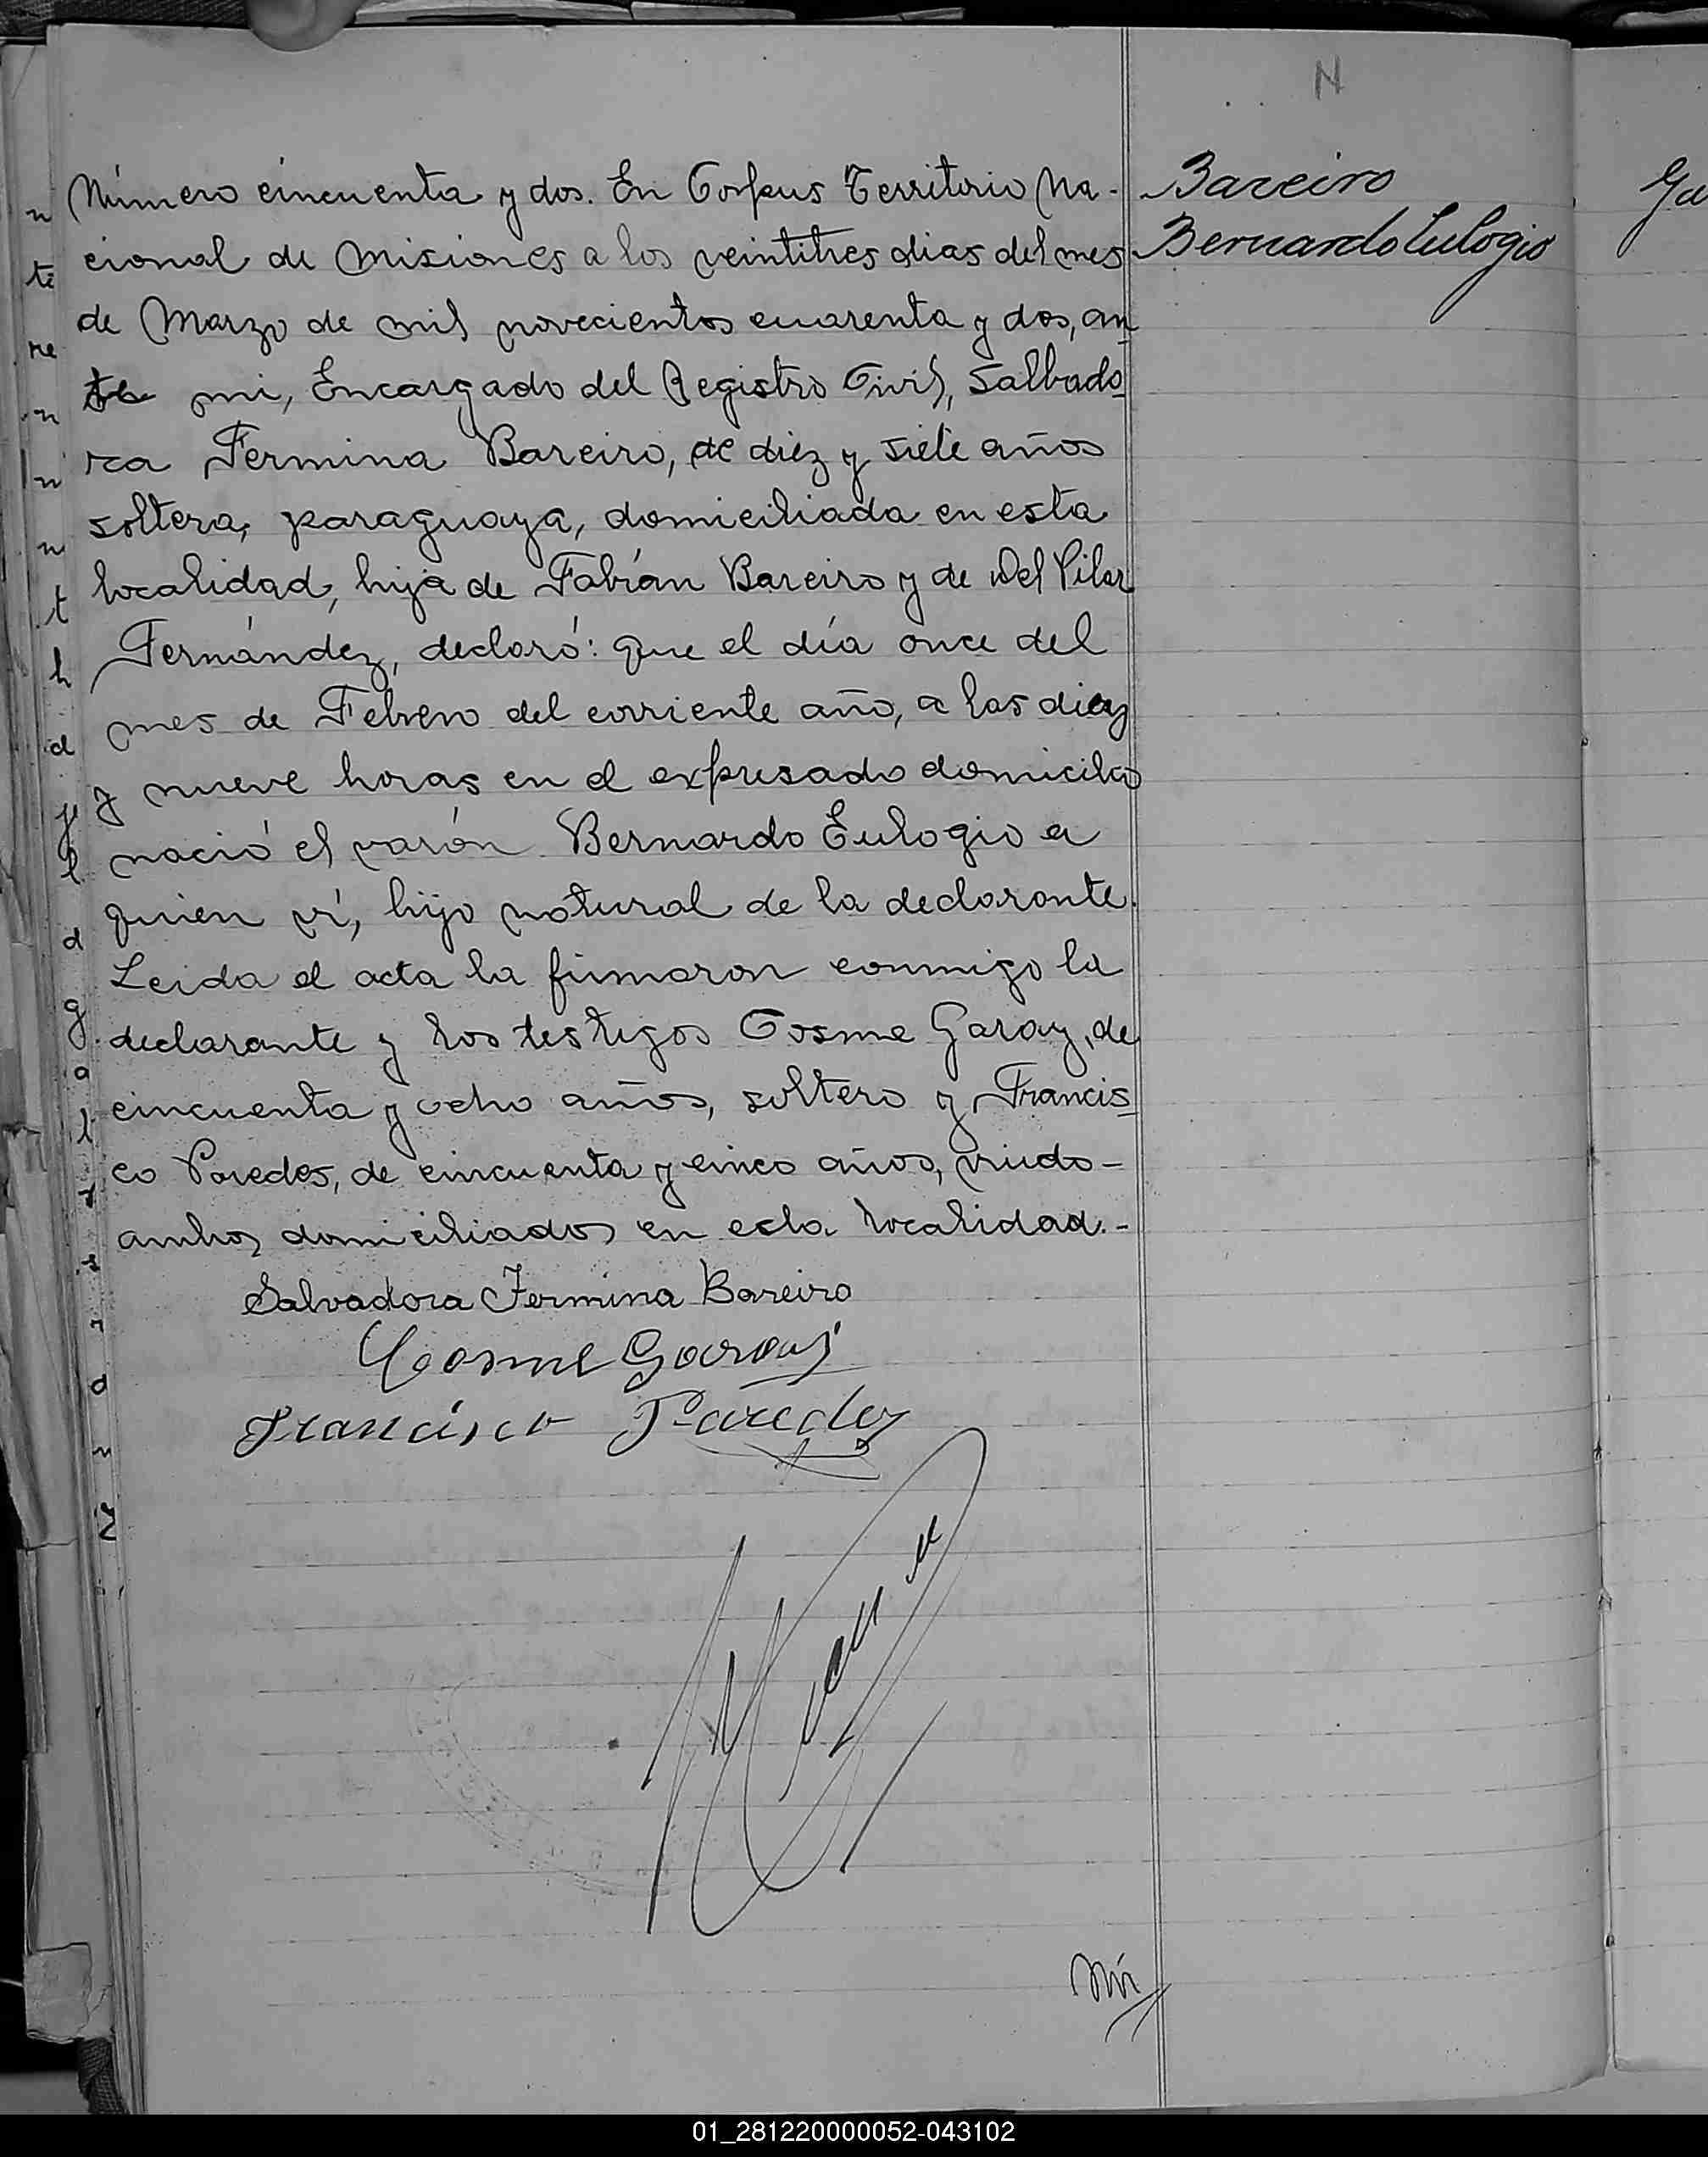 N
Bareiro
Bernardo Eulogio
Número cincuenta y dos. En Corpus Territorio Na-
cional de Misiones a los veintitres dias del mes
de Marzo de mil novecientos cuarenta y dos, an
te mi, Encargado del Registro Civil, Salbado
ra Fermina Bareiro, de diez y siete años
soltera, paraguaya, domiciliada en esta
localidad, hija de Fabián Bareiro y de Del Pilar
Fernández, declaró: que el día once del
mes de Febrero del corriente año, a las diez
y nueve horas en el expresado domicilio
nació el varón Bernardo Eulogio a
quien ví, hijo natural de la declarante.
Leida el acta la firmaron conmigo la
declarante y los testigos Cosme Garay, de
cincuenta y ocho años, soltero y Francis
co Paredes, de cincuenta y cinco años, viudo-
ambos domiciliados en esta localidad.-
Salvadora Fermina Bareiro
Cosme Garay
Francisco Paredes
01_281220000052-043102